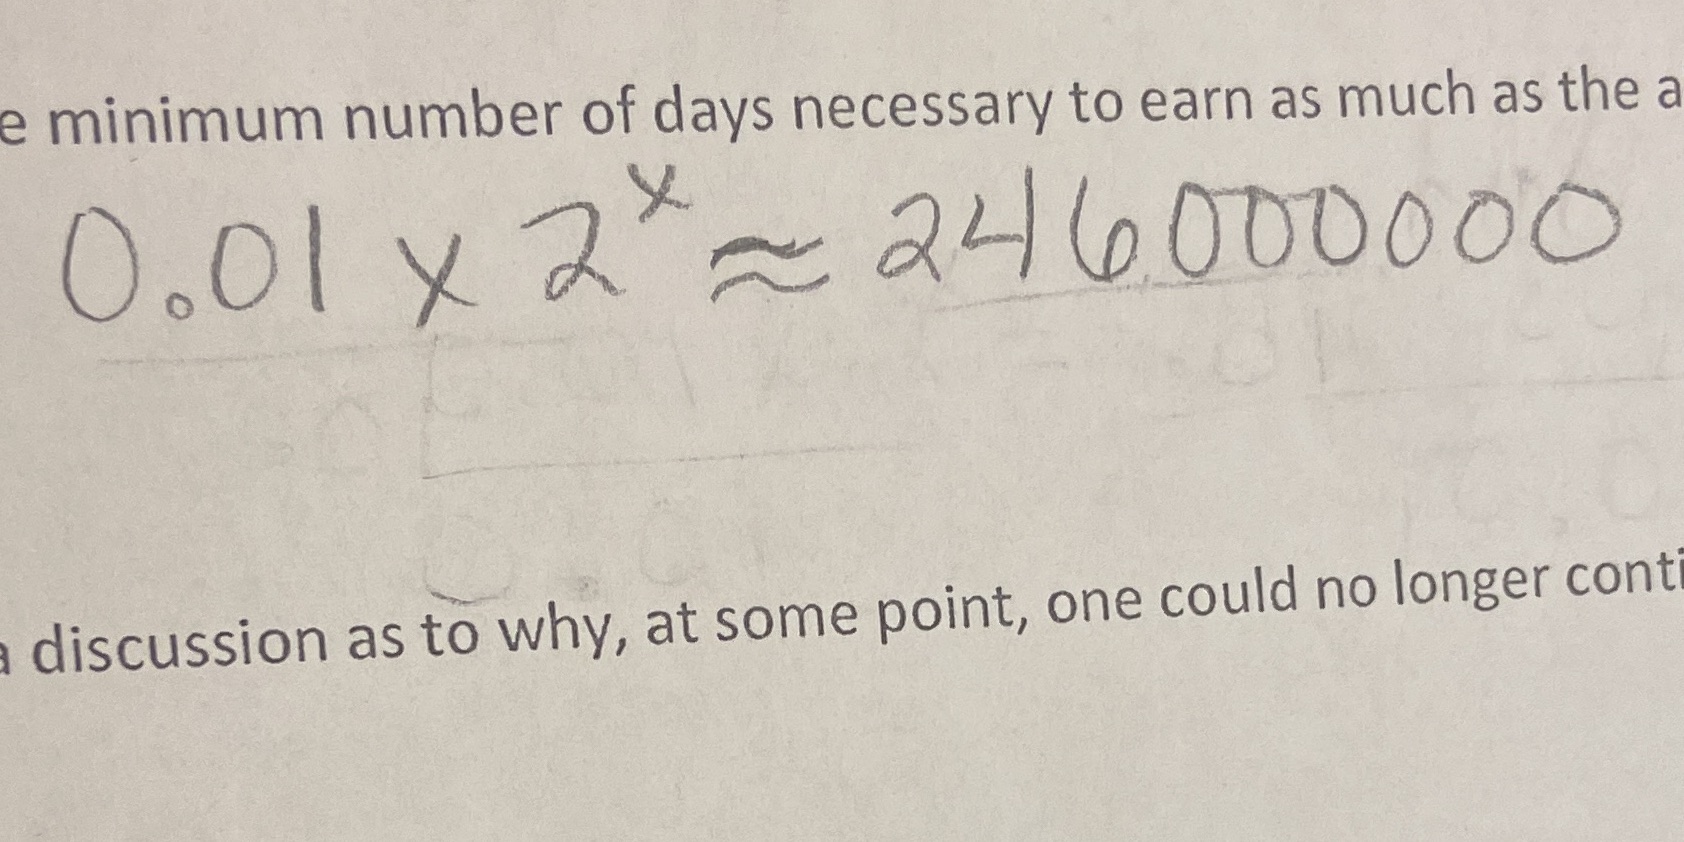 e minimum number of days necessary to earn as much as the a
0.01 x 2^x ≈ 246000000
a discussion as to why, at some point, one could no longer conti